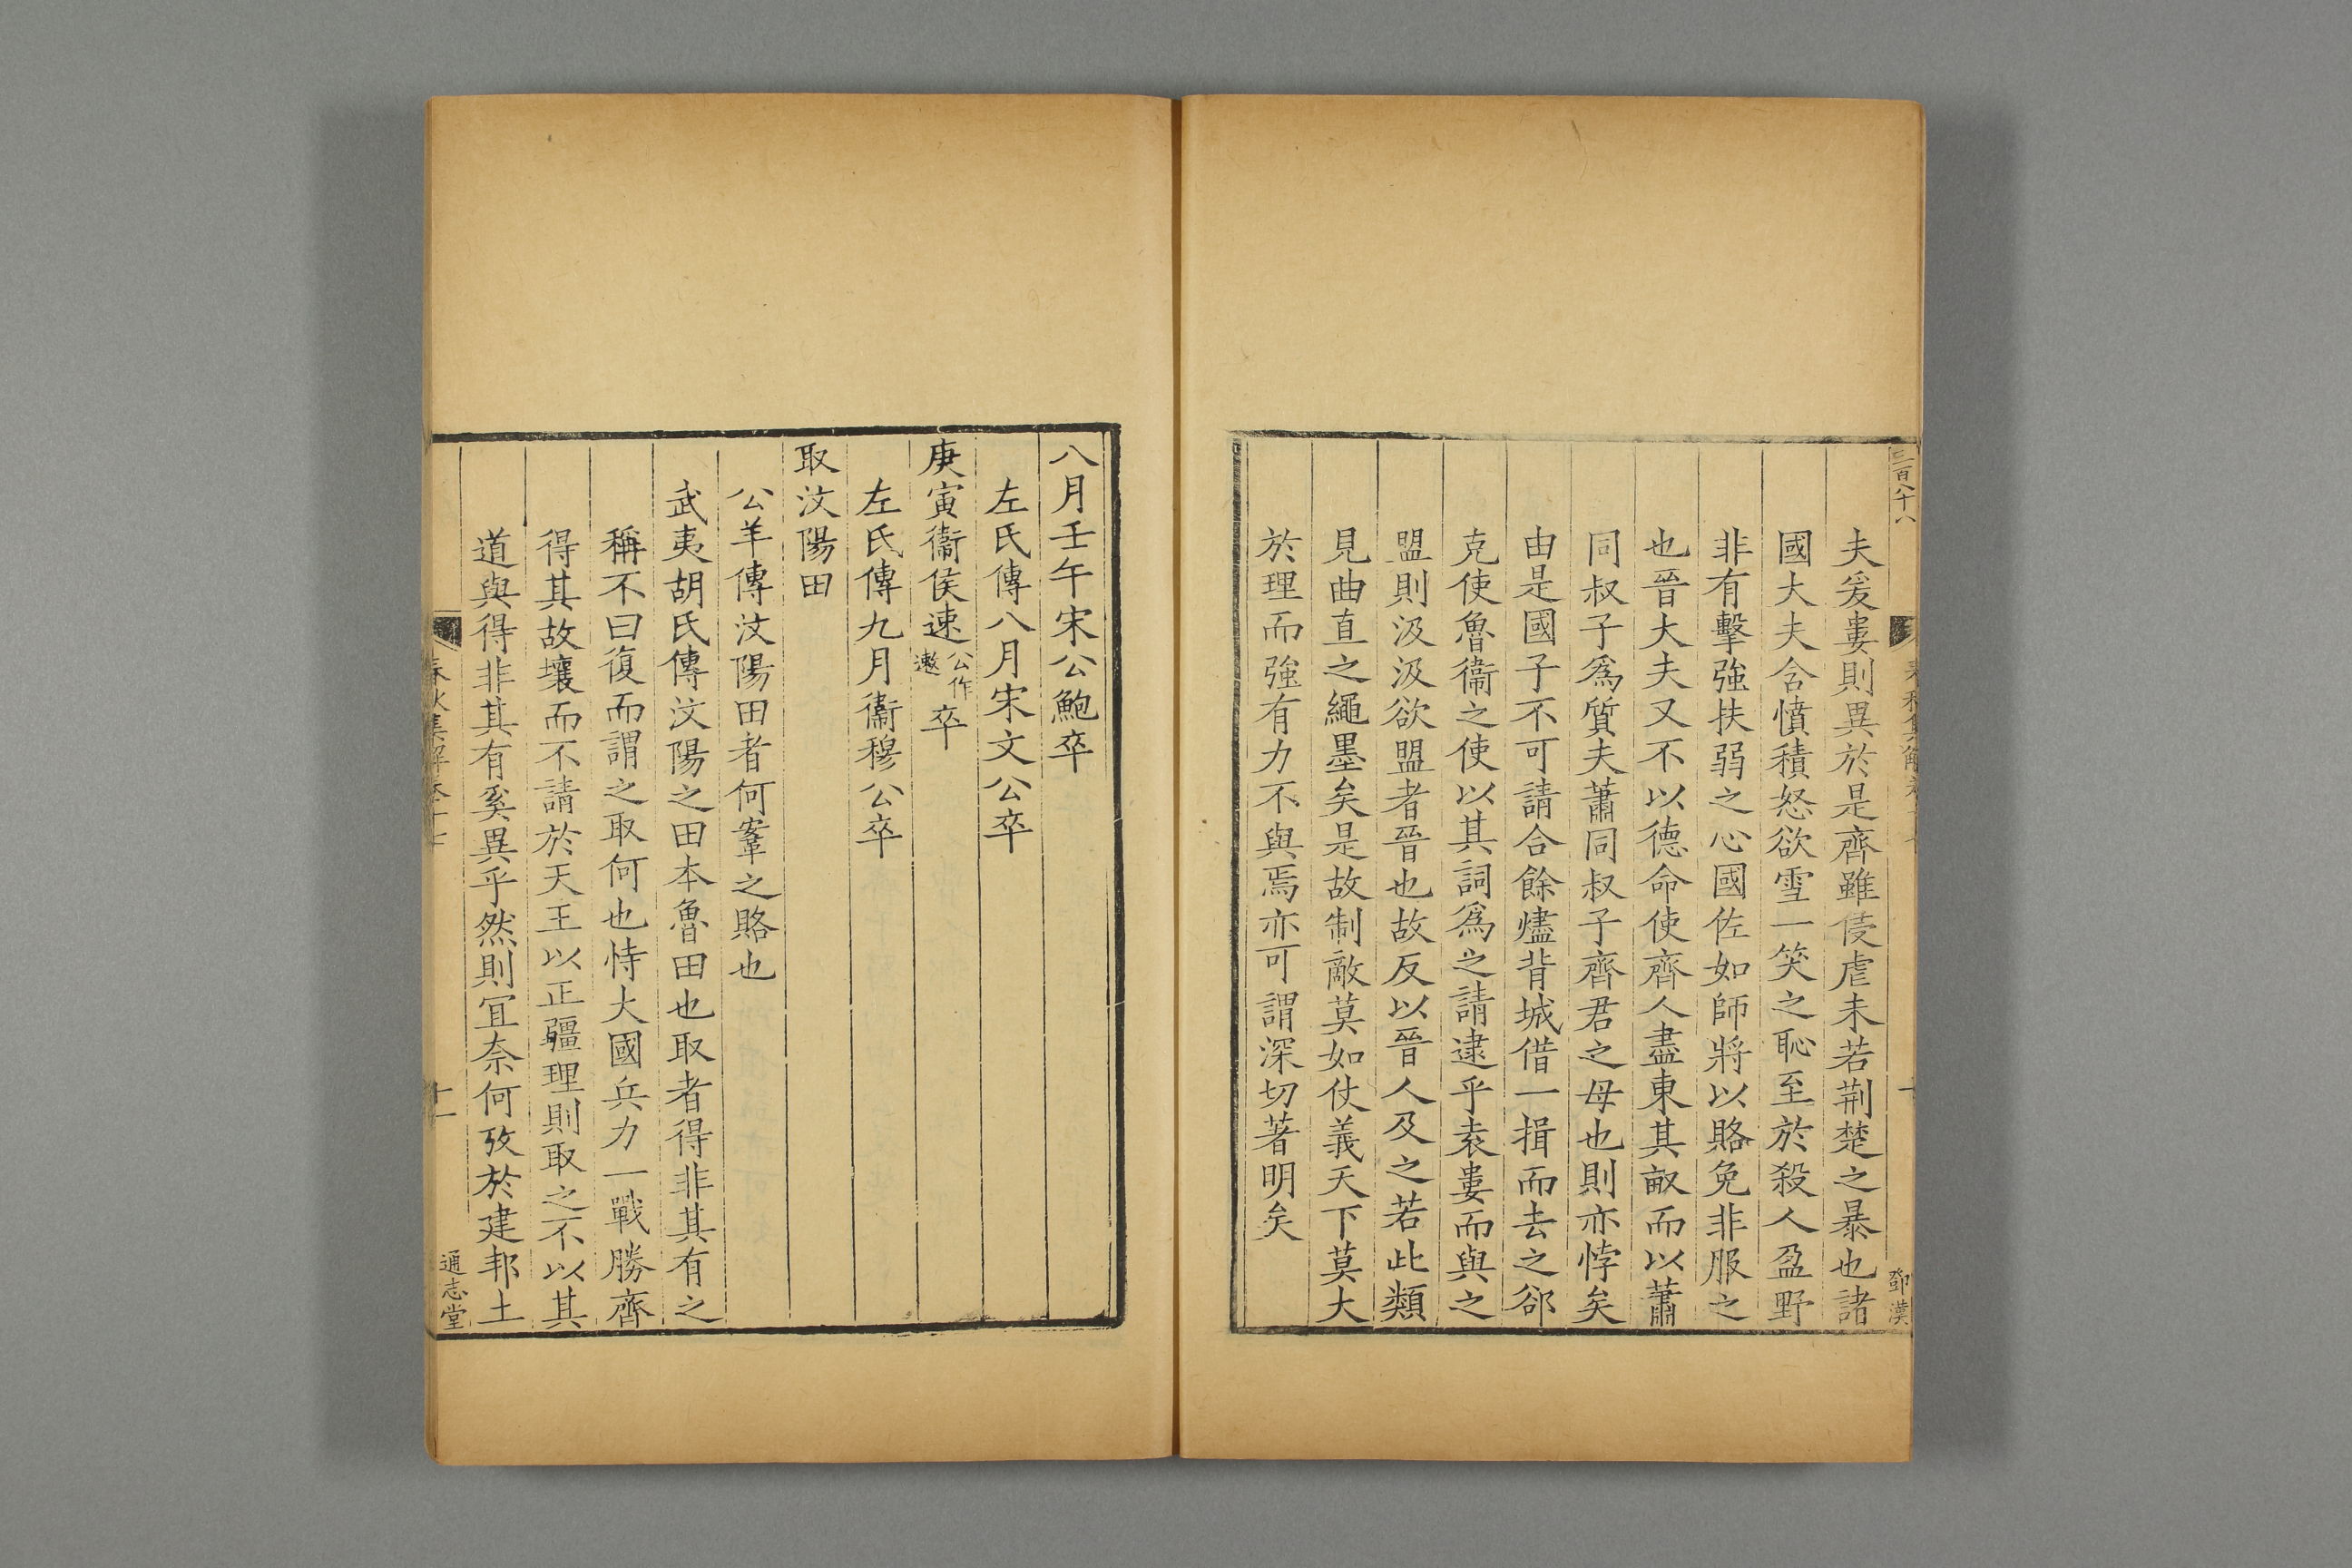 三百八十八
鄧漢
夫爰婁則異於是齊雖侵虐未若荆楚之暴也諸
國大夫含憤積怒欲雪一笑之恥至於殺人盈野
非有擊強扶弱之心國佐如師將以賂免非服之
也晉大夫又不以德命使齊人盡東其畝而以蕭
同叔子爲質夫蕭同叔子齊君之母也則亦悖矣
由是國子不可請合餘燼背城借一揖而去之郤
克使魯衞之使以其詞爲之請逮乎袁婁而與之
盟則汲汲欲盟者晉也故反以晉人及之若此類
見曲直之繩墨矣是故制敵莫如仗義天下莫大
於理而強有力不與焉亦可謂深切著明矣
八月壬午宋公鮑卒
左氏傳八月宋文公卒
庚寅衞侯速公作遬卒
左氏傳九月衞穆公卒
取汶陽田
公羊傳汶陽田者何鞌之賂也
武夷胡氏傳汶陽之田本魯田也取者得非其有之
稱不曰復而謂之取何也恃大國兵力一戰勝齊
得其故壤而不請於天王以正疆理則取之不以其
道與得非其有奚異乎然則宜奈何攷於建邦土
春秋集解卷十七
十一
通志堂